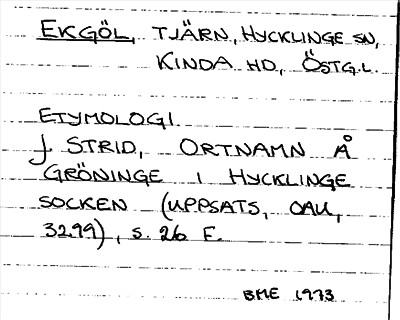 EKGÖL, TJÄRN, HYCKLINGE SN,
KINDA HD, ÖSTG.L.
ETYMOLOGI
J. STRID, ORTNAMN Å
GRÖNINGE I HYCKLINGE
SOCKEN (UPPSATS, OAU,
3299), S. 26 F.
BME 1973